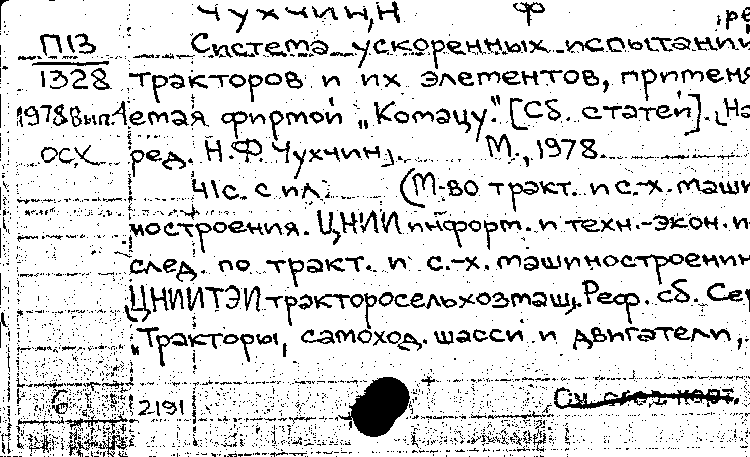 Чухчин, Н Ф , ре
П13 Система ускоренных испытаний
1328 тракторов и их элементов, применя
1978 Вып.4 емая фирмой „Комацу". [Сб. статей]. На
ОСХ ред. Н.Ф. Чухчин, . М., 1978.
41с. с ил. (М-во тракт. и с.-х. маши
ностроения. ЦНИИ информ. и техн.-экон. и
след. по тракт. и с.-х. машиностроении
ЦНИИТЭИтракторосельхозмаш, Реф. сб. Се
„Тракторы, самоход. шасси и двигатели,
6 2191 См. след. карт.